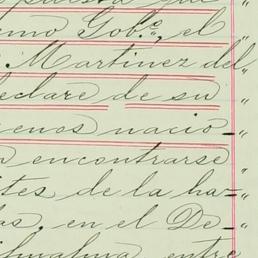 puesta por
mo Gob.º, el
Martinez del
eclare de su
enos nacio=
encontrarse
tes, de la ha=
as, en el De=
entre